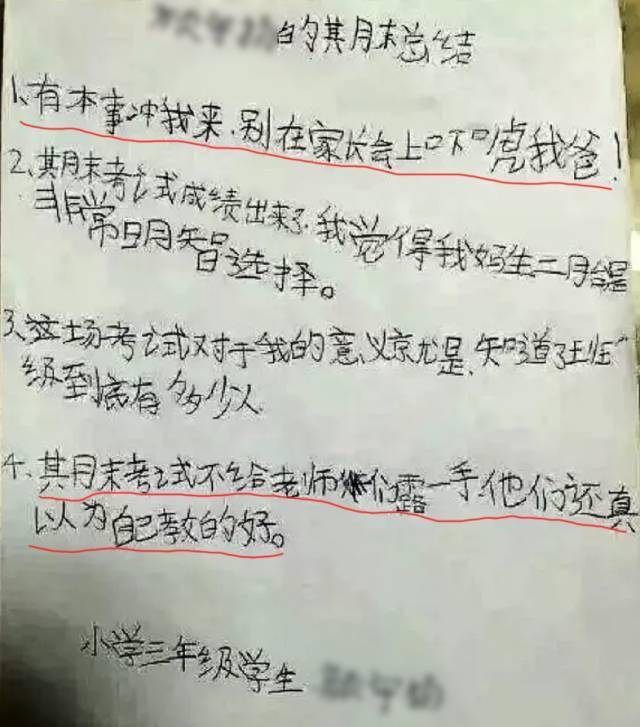 的其月末总结
1、有本事冲我来,别在家长会上吓唬我爸!
2、其月末考试成绩出来了,我觉得我妈生二月台是
非常明智选择。
3、这场考试对于我的意义京尤是,知道了班
级到底有多少人
4、其月末考试不给老师们露一手,他们还真
以为自己教的好。
小学三年级学生